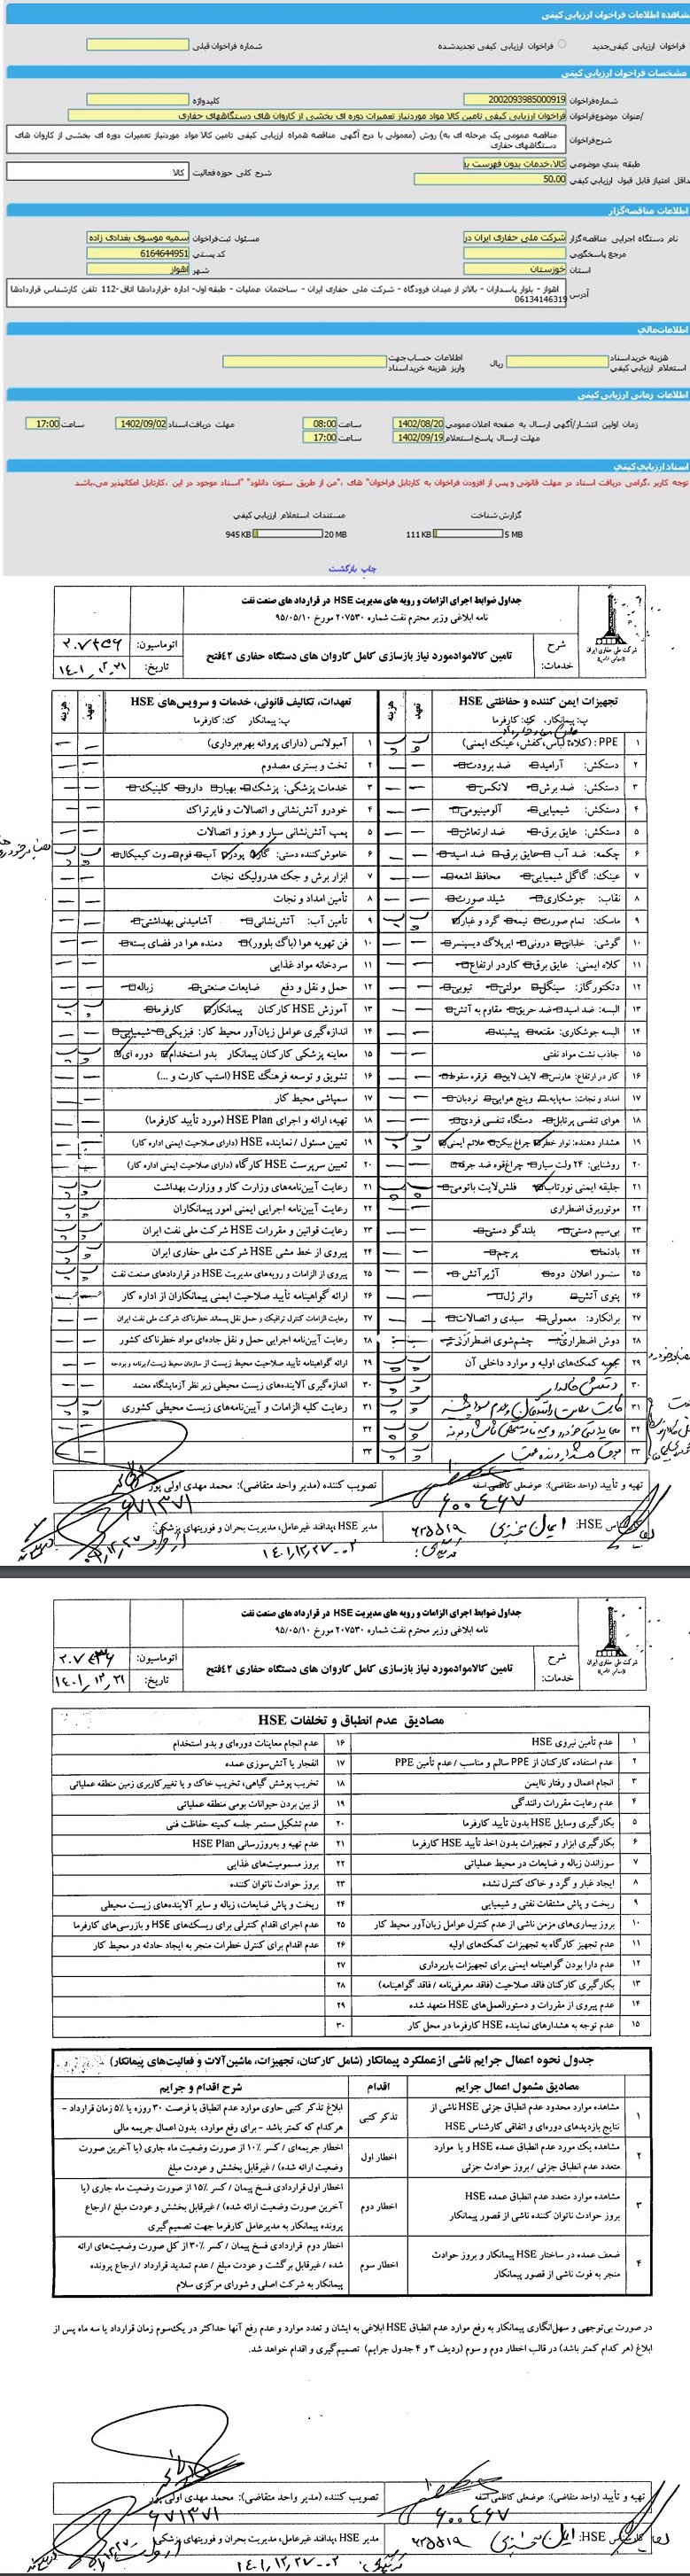 مشاهده اطلاعات فراخوان ارزیابی کیفی
فراخوان ارزیابی کیفی جدید
فراخوان ارزیابی کیفی تجدیدشده
شماره فراخوان قبلی
مشخصات فراخوان ارزیابی کیفی
شماره فراخوان 2002093985000919
کلیدواژه
عنوان/ موضوع فراخوان فراخوان ارزیابی کیفی تامین کالا مواد موردنیاز تعمیرات دوره ای بخشی از کاروان های دستگاههای حفاری
شرح فراخوان مناقصه عمومی یک مرحله ای به) روش (معمولی با درج آگهی مناقصه همراه ارزیابی کیفی تامین کالا مواد موردنیاز تعمیرات دوره ای بخشی از کاروان های
دستگاههای حفاری
طبقه بندی موضوعی کالا،خدمات بدون فهرست به
شرح کلی حوزه فعالیت کالا
حداقل امتیاز قابل قبول ارزیابی کیفی 50.00
اطلاعات مناقصه گزار
نام دستگاه اجرایی مناقصه گزار شرکت ملی حفاری ایران در
مسئول ثبت فراخوان سمیه موسوی بغدادی زاده
مرجع پاسخگویی
کد پستی 6164644951
استان خوزستان
شهر اهواز
آدرس اهواز - بلوار پاسداران - بالاتر از میدان فرودگاه - شرکت ملی حفاری ایران - ساختمان عملیات - طبقه اول- اداره -قراردادها اتاق-112 تلفن کارشناس قراردادها
06134146319
اطلاعات مالی
هزینه خرید اسناد استعلام ارزیابی کیفی ریال
اطلاعات حساب جهت واریز هزینه خرید اسناد
اطلاعات زمانی ارزیابی کیفی
زمان اولین انتشار/آگهی ارسال به صفحه اعلان عمومی 1402/08/20 ساعت 08:00
مهلت دریافت اسناد 1402/09/02 ساعت 17:00
مهلت ارسال پاسخ استعلام 1402/09/19 ساعت 17:00
اسناد ارزیابی کیفی
توجه کاربر ،گرامی دریافت اسناد در مهلت قانونی و پس از افزودن فراخوان به کارتابل فراخوان" های ،"من از طریق ستون دانلود" "اسناد موجود در این ،کارتابل امکانپذیر می.باشد
گزارش شناخت
مستندات استعلام ارزیابی کیفی
5 MB 111 KB
20 MB 945 KB
چاپ بازگشت
جداول ضوابط اجرای الزامات و رویه های مدیریت HSE در قرارداد های صنعت نفت
نامه ابلاغی وزیر محترم نفت شماره ۲۰۷۵۳۰ مورخ ۹۵/۰۵/۱۰
شرکت ملی حفاری ایران
شرح خدمات:
تامین کالامواد مورد نیاز بازسازی کامل کاروان های دستگاه حفاری ۴۲فتح
اتوماسیون:
تاریخ: ۱۴۰۱،۱۲،۲۱
تجهیزات ایمن کننده و حفاظتی HSE
پ: پیمانکار ک: کارفرما
تعهد
هزینه
تعهدات، تکالیف قانونی، خدمات و سرویس‌های HSE
پ: پیمانکار ک: کارفرما
تعهد
هزینه
۱ PPE : (کلاه، لباس، کفش، عینک ایمنی)
۱ آمبولانس (دارای پروانه بهره‌برداری)
۲ دستکش: آرامید ضد برودت
۲ تخت و بستری مصدوم
۳ دستکش: ضد برش لاتکس
۳ خدمات پزشکی: پزشک بهیار دارو کلینیک
۴ دستکش: شیمیایی آلومینیومی
۴ خودرو آتش‌نشانی و اتصالات و فایرتراک
۵ دستکش: عایق برق ضد ارتعاش
۵ پمپ آتش‌نشانی سیار و هوز و اتصالات
۶ چکمه: ضد آب عایق برق ضد اسید
۶ خاموش‌کننده دستی: گاز پودر آب فوم وت کمیکال
۷ عینک: گاگل شیمیایی محافظ اشعه
۷ ابزار برش و جک هدرولیک نجات
۸ نقاب: جوشکاری شیلد صورت
۸ تأمین امداد و نجات
۹ ماسک: تمام صورت نیمه گرد و غبار
۹ تأمین آب: آتش‌نشانی آشامیدنی بهداشتی
۱۰ گوشی: خلبانی درونی ایرپلاگ دیسپنسر
۱۰ فن تهویه هوا (باگ بلوور) دمنده هوا در فضای بسته
۱۱ کلاه ایمنی: عایق برق کار در ارتفاع
۱۱ سردخانه مواد غذایی
۱۲ دتکتور گاز: سینگل مولتی تیوبی
۱۲ حمل و نقل و دفع ضایعات صنعتی زباله
۱۳ البسه: ضد اسید ضد حریق مقاوم به آتش
۱۳ آموزش HSE کارکنان پیمانکار کارفرما
۱۴ البسه جوشکاری: مقنعه پیشبند
۱۴ اندازه‌گیری عوامل زیان‌آور محیط کار: فیزیکی شیمیایی
۱۵ جاذب نشت مواد نفتی
۱۵ معاینه پزشکی کارکنان پیمانکار بدو استخدام دوره ای
۱۶ کار در ارتفاع: هارنس لایف لاین قرقره سقوط
۱۶ تشویق و توسعه فرهنگ HSE (استپ کارت و ...)
۱۷ امداد و نجات: سه‌پایه وینچ هوایی نردبان
۱۷ سمپاشی محیط کار
۱۸ هوای تنفسی پرتابل دستگاه تنفسی فردی
۱۸ تهیه، ارائه و اجرای HSE Plan (مورد تأیید کارفرما)
۱۹ هشدار دهنده: نوار خطر چراغ بیکن علائم ایمنی
۱۹ تعیین مسئول / نماینده HSE (دارای صلاحیت ایمنی اداره کار)
۲۰ روشنایی: ۲۴ ولت سیار چراغ‌قوه ضد جرقه
۲۰ تعیین سرپرست HSE کارگاه (دارای صلاحیت ایمنی اداره کار)
۲۱ جلیقه ایمنی نورتاب فلش‌لایت باتومی
۲۱ رعایت آیین‌نامه‌های وزارت کار و وزارت بهداشت
۲۲ موتوربرق اضطراری
۲۲ رعایت آیین‌نامه اجرایی ایمنی امور پیمانکاران
۲۳ بی‌سیم دستی بلندگو دستی
۲۳ رعایت قوانین و مقررات HSE شرکت ملی نفت ایران
۲۴ بادنما پرچم
۲۴ پیروی از خط مشی HSE شرکت ملی حفاری ایران
۲۵ سنسور اعلان دود آژیر آتش
۲۵ پیروی از الزامات و رویه‌های مدیریت HSE در قراردادهای صنعت نفت
۲۶ پتوی آتش واتر ژل
۲۶ ارائه گواهینامه تأیید صلاحیت ایمنی پیمانکاران از اداره کار
۲۷ برانکارد: معمولی سبدی و اتصالات
۲۷ رعایت الزامات کنترل ترافیک و حمل نقل پسماند خطرناک شرکت ملی نفت ایران
۲۸ دوش اضطراری چشم‌شوی اضطراری
۲۸ رعایت آیین‌نامه اجرایی حمل و نقل جاده‌ای مواد خطرناک کشور
۲۹ جعبه کمک‌های اولیه و موارد داخلی آن
۲۹ ارائه گواهینامه تأیید صلاحیت محیط زیست از سازمان محیط زیست/برنامه و بودجه
۳۰
۳۰ اندازه‌گیری آلاینده‌های زیست محیطی زیر نظر آزمایشگاه معتمد
۳۱
۳۱ رعایت کلیه الزامات و آیین‌نامه‌های زیست محیطی کشوری
۳۲
۳۲
۳۳
۳۳
تهیه و تأیید (واحد متقاضی): عوضعلی کاظمی اسفه
تصویب کننده (مدیر واحد متقاضی): محمد مهدی اولی پور
۶۰۰۴۶۷
۶۷۱۳۷۱
کارشناس HSE:
مدیر HSE ،پدافند غیرعامل، مدیریت بحران و فوریتهای پزشکی:
جداول ضوابط اجرای الزامات و رویه های مدیریت HSE در قرارداد های صنعت نفت
نامه ابلاغی وزیر محترم نفت شماره ۲۰۷۵۳۰ مورخ ۹۵/۰۵/۱۰
شرکت ملی حفاری ایران
شرح خدمات:
تامین کالامواد مورد نیاز بازسازی کامل کاروان های دستگاه حفاری ۴۲فتح
اتوماسیون:
تاریخ: ۱۴۰۱،۱۲،۲۱
مصادیق عدم انطباق و تخلفات HSE
۱ عدم تأمین نیروی HSE
۱۶ عدم انجام معاینات دوره‌ای و بدو استخدام
۲ عدم استفاده کارکنان از PPE سالم و مناسب / عدم تأمین PPE
۱۷ انفجار یا آتش‌سوزی عمده
۳ انجام اعمال و رفتار ناایمن
۱۸ تخریب پوشش گیاهی، تخریب خاک و یا تغییر کاربری زمین منطقه عملیاتی
۴ عدم رعایت مقررات رانندگی
۱۹ از بین بردن حیوانات بومی منطقه عملیاتی
۵ بکارگیری وسایل HSE بدون تأیید کارفرما
۲۰ عدم تشکیل مستمر جلسه کمیته حفاظت فنی
۶ بکارگیری ابزار و تجهیزات بدون اخذ تأیید HSE کارفرما
۲۱ عدم تهیه و به‌روزرسانی HSE Plan
۷ سوزاندن زباله و ضایعات در محیط عملیاتی
۲۲ بروز مسمومیت‌های غذایی
۸ ایجاد غبار و گرد و خاک کنترل نشده
۲۳ بروز حوادث ناتوان کننده
۹ ریخت و پاش مشتقات نفتی و شیمیایی
۲۴ ریخت و پاش ضایعات، زباله و سایر آلاینده‌های زیست محیطی
۱۰ بروز بیماری‌های مزمن ناشی از عدم کنترل عوامل زیان‌آور محیط کار
۲۵ عدم اجرای اقدام کنترلی برای ریسک‌های HSE و بازرسی‌های کارفرما
۱۱ عدم تجهیز کارگاه به تجهیزات کمک‌های اولیه
۲۶ عدم اقدام برای کنترل خطرات منجر به ایجاد حادثه در محیط کار
۱۲ عدم دارا بودن گواهینامه ایمنی برای تجهیزات باربرداری
۲۷
۱۳ بکارگیری کارکنان فاقد صلاحیت (فاقد معرفی‌نامه / فاقد گواهینامه)
۲۸
۱۴ عدم پیروی از مقررات و دستورالعمل‌های HSE متعهد شده
۲۹
۱۵ عدم توجه به هشدارهای نماینده HSE کارفرما در محل کار
۳۰
جدول نحوه اعمال جرایم ناشی از عملکرد پیمانکار (شامل کارکنان، تجهیزات، ماشین‌آلات و فعالیت‌های پیمانکار)
مصادیق مشمول اعمال جرایم
اقدام
شرح اقدام و جرایم
۱ مشاهده موارد محدود عدم انطباق جزئی HSE ناشی از
نتایج بازدیدهای دوره‌ای و اتفاقی کارشناس HSE
تذکر کتبی
ابلاغ تذکر کتبی حاوی موارد عدم انطباق با فرصت ۳۰ روزه یا ۵% زمان قرارداد -
هرکدام که کمتر باشد - برای رفع موارد، بدون اعمال جریمه مالی
۲ مشاهده یک مورد عدم انطباق عمده HSE و یا موارد
متعدد عدم انطباق جزئی / بروز حوادث جزئی
اخطار اول
اخطار جریمه‌ای / کسر ۱۰% از صورت وضعیت ماه جاری (یا آخرین صورت
وضعیت ارائه شده) / غیرقابل بخشش و عودت مبلغ
۳ مشاهده موارد متعدد عدم انطباق عمده HSE
بروز حوادث ناتوان کننده ناشی از قصور پیمانکار
اخطار دوم
اخطار اول قراردادی فسخ پیمان / کسر ۱۵% از صورت وضعیت ماه جاری (یا
آخرین صورت وضعیت ارائه شده) / غیرقابل بخشش و عودت مبلغ / ارجاع
پرونده پیمانکار به مدیرعامل کارفرما جهت تصمیم‌گیری
۴ ضعف عمده در ساختار HSE پیمانکار و بروز حوادث
منجر به فوت ناشی از قصور پیمانکار
اخطار سوم
اخطار دوم قراردادی فسخ پیمان / کسر ۳۰% از کل صورت وضعیت‌های ارائه
شده / غیرقابل برگشت و عودت مبلغ / عدم تمدید قرارداد / ارجاع پرونده
پیمانکار به شرکت اصلی و شورای مرکزی سلام
در صورت بی‌توجهی و سهل‌انگاری پیمانکار به رفع موارد عدم انطباق HSE ابلاغی به ایشان و تعدد موارد و عدم رفع آنها حداکثر در یک‌سوم زمان قرارداد یا سه ماه پس از
ابلاغ (هر کدام کمتر باشد) در قالب اخطار دوم و سوم (ردیف ۳ و ۴ جدول جرایم) تصمیم‌گیری و اقدام خواهد شد.
تهیه و تأیید (واحد متقاضی): عوضعلی کاظمی اسفه
تصویب کننده (مدیر واحد متقاضی): محمد مهدی اولی پور
۶۰۰۴۶۷
۶۷۱۳۷۱
HSE:
مدیر HSE ،پدافند غیرعامل، مدیریت بحران و فوریتهای پزشکی